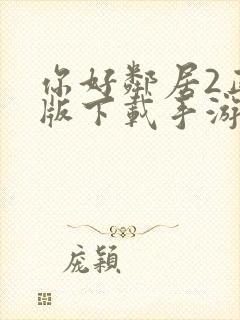 你好鄰居2正
版下載手游
庞穎